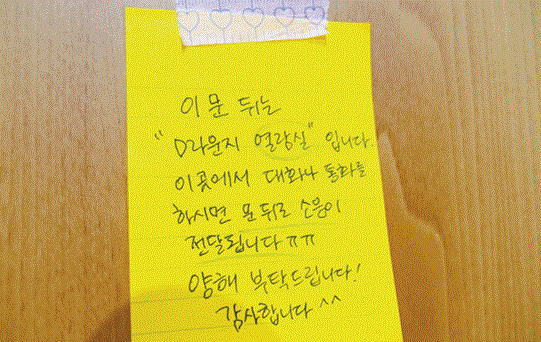 이 문 뒤는
"D라운지 열람실" 입니다.
이곳에서 대화나 통화를
하시면 문 뒤로 소음이
전달됩니다 ㅠㅠ
양해 부탁드립니다!
감사합니다 ^^